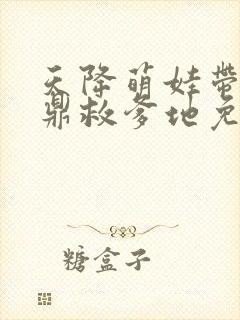 天降萌娃带
鼎救爹地免
糖盒子